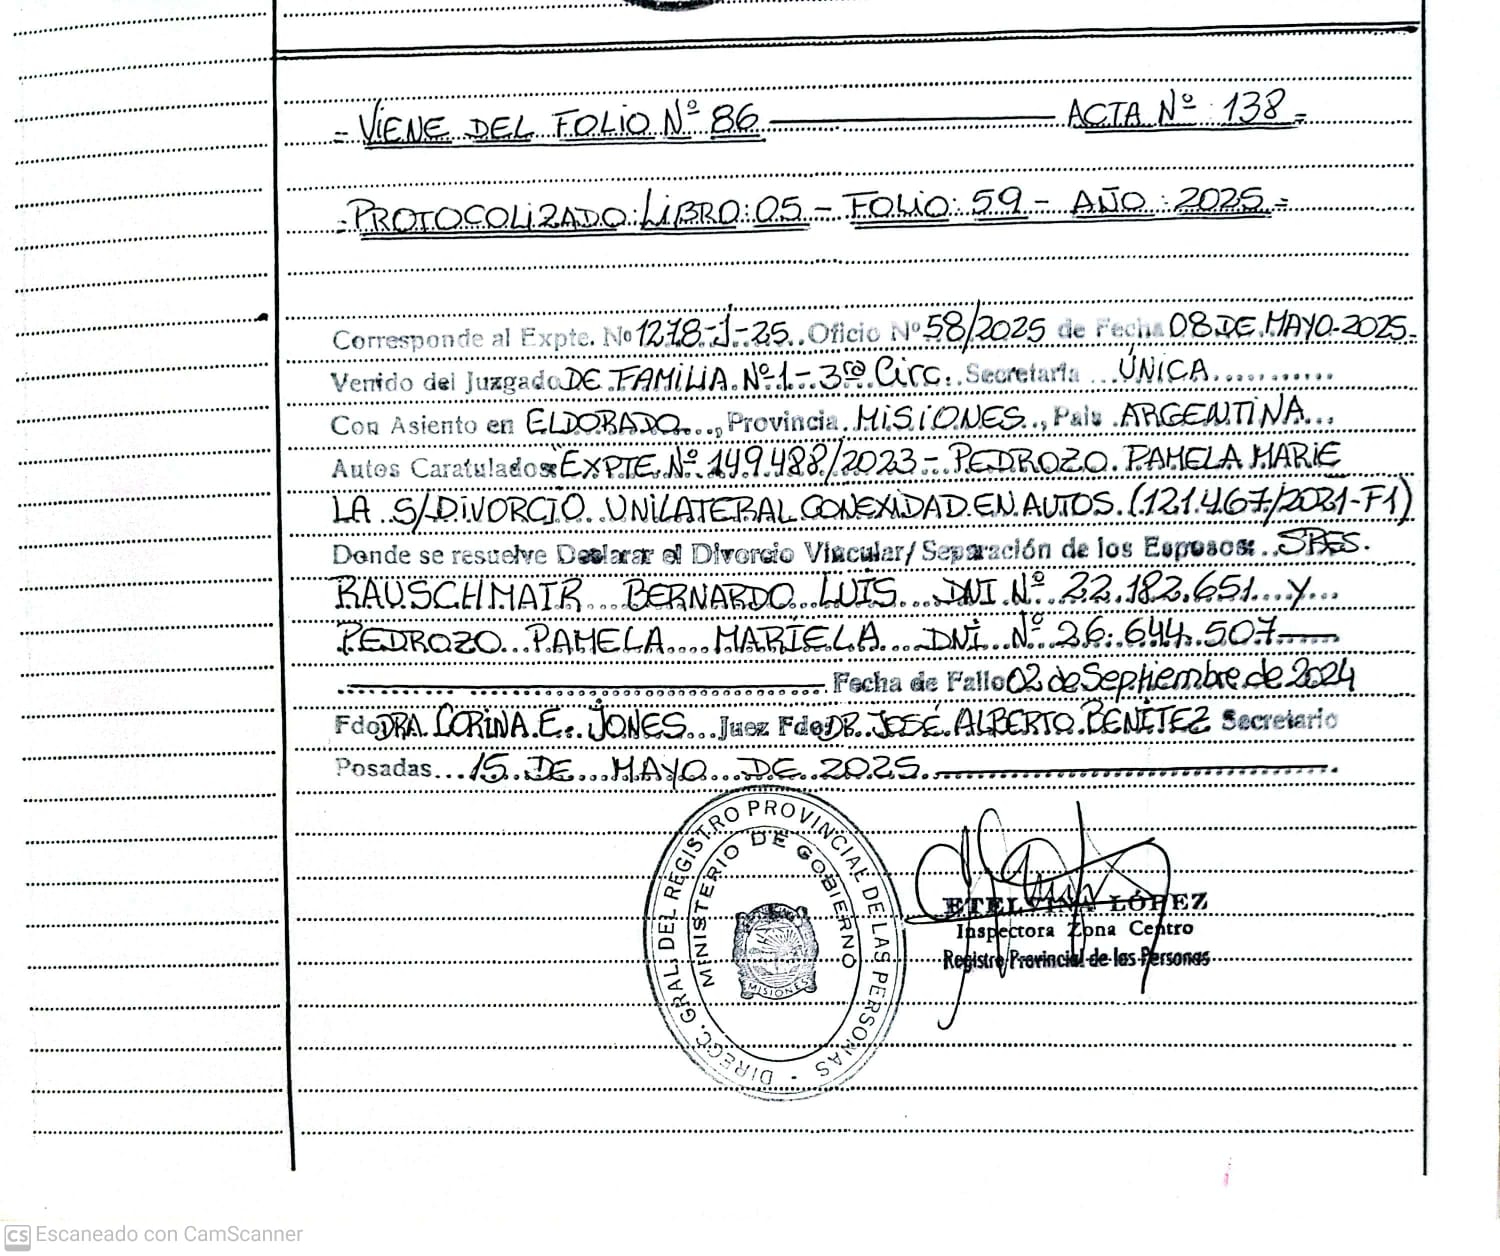 = VIENE DEL FOLIO Nº 86 ACTA Nº 138 =
= PROTOCOLIZADO: LIBRO: 05 - FOLIO: 59 - AÑO: 2025 =
Corresponde al Expte. Nº 1278-J-25.. Oficio Nº 58/2025 de Fecha 08 DE MAYO-2025-
Venido del Juzgado DE FAMILIA Nº 1 - 3ra Circ. Secretaría ... ÚNICA...........
Con Asiento en ELDORADO..., Provincia. MISIONES.., País ARGENTINA...
Autos Caratulados: "EXPTE. Nº 149.488/2023 - PEDROZO PAMELA MARIE
LA S/DIVORCIO UNILATERAL CONEXIDAD EN AUTOS (121.467/2021-F1)
Donde se resuelve Declarar el Divorcio Vincular/ Separación de los Esposos: SRES.
RAUSCHMAIR BERNARDO LUIS DNI Nº 22.182.651 Y...
PEDROZO PAMELA MARIELA DNI Nº 26.644.507
Fecha de Fallo 02 de Septiembre de 2024
Fdo DRA. CORINA E. JONES... Juez Fdo: DR. JOSÉ ALBERTO BENÍTEZ Secretario
Posadas... 15 DE MAYO DE 2025
DIRECC. GRAL. DEL REGISTRO PROVINCIAL DE LAS PERSONAS -
MINISTERIO DE GOBIERNO
MISIONES
ETELVINA LÓPEZ
Inspectora Zona Centro
Registro Provincial de las Personas
CS Escaneado con CamScanner